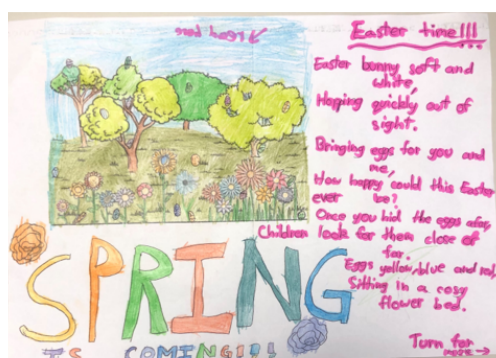 ↘ read here
Easter time!!!
Easter bunny soft and
white,
Hoping quickly out of
sight.
Bringing eggs for you and
me,
How happy could this Easter
ever be?
Once you hid the eggs afar,
Children look for them close of
far.
Eggs yellow, blue and red,
Sitting in a cosy
flower bed.
Turn for
MORE →
SPRING
IS COMING!!!